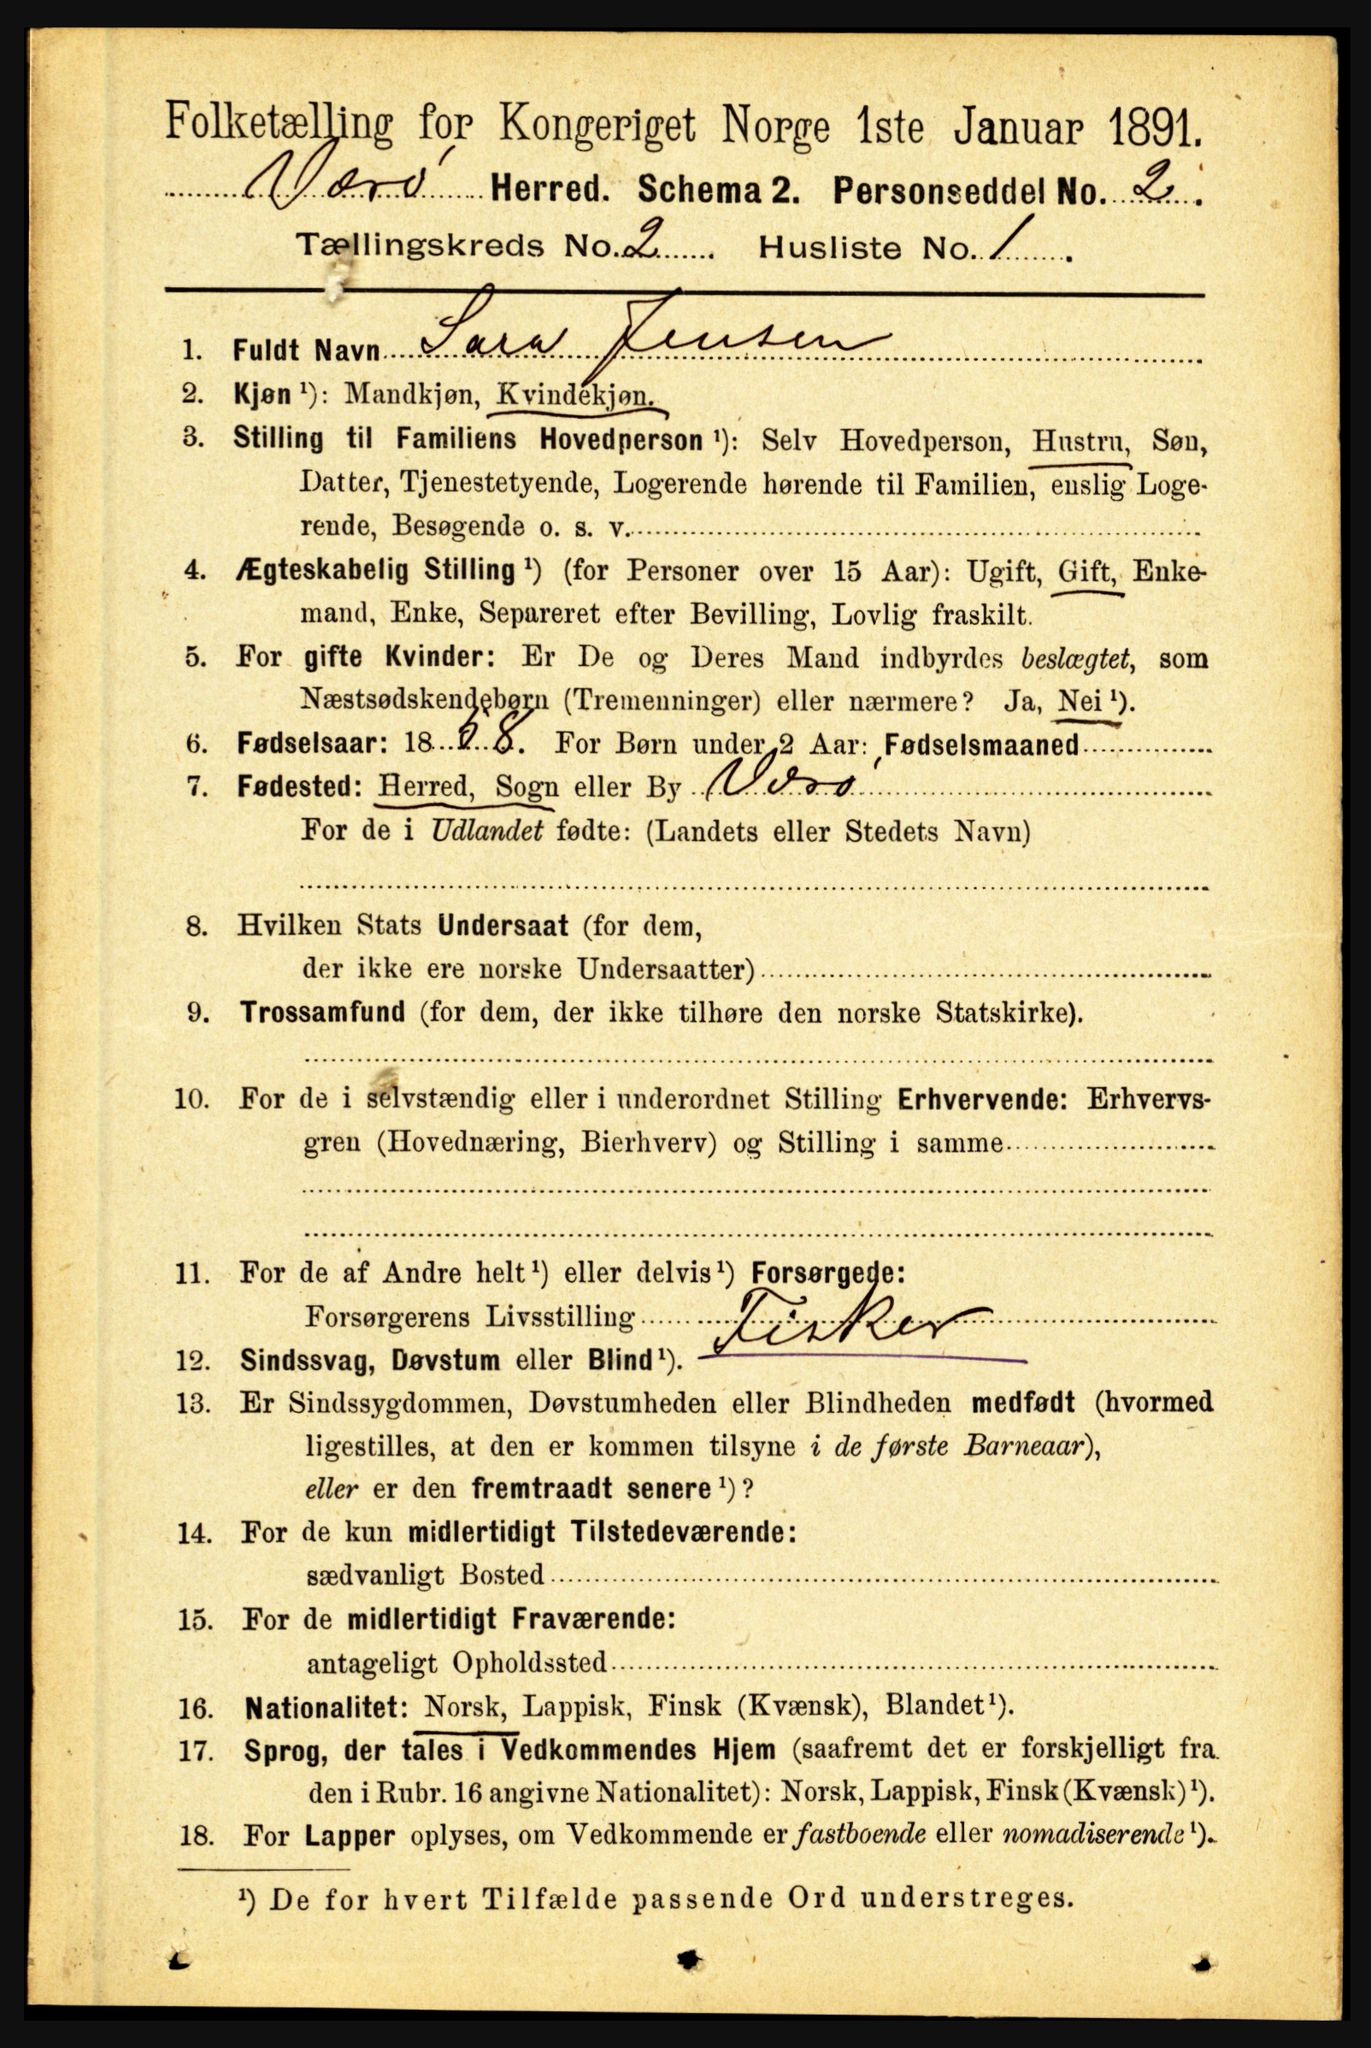 Folketælling for Kongeriget Norge 1ste Januar 1891.
Værø Herred. Schema 2. Personseddel No. 2.
Tællingskreds No. 2. Husliste No. 1.
1. Fuldt Navn Sara Jensen
2. Kjøn ¹): Mandkjøn, Kvindekjøn.
3. Stilling til Familiens Hovedperson ¹): Selv Hovedperson, Hustru, Søn,
Datter, Tjenestetyende, Logerende hørende til Familien, enslig Loge-
rende, Besøgende o. s. v.
4. Ægteskabelig Stilling ¹) (for Personer over 15 Aar): Ugift, Gift, Enke-
mand, Enke, Separeret efter Bevilling, Lovlig fraskilt.
5. For gifte Kvinder: Er De og Deres Mand indbyrdes beslægtet, som
Næstsødskendebørn (Tremenninger) eller nærmere? Ja, Nei ¹).
6. Fødselsaar: 18 28. For Børn under 2 Aar: Fødselsmaaned
7. Fødested: Herred, Sogn eller By Værø
For de i Udlandet fødte: (Landets eller Stedets Navn)
8. Hvilken Stats Undersaat (for dem,
der ikke ere norske Undersaatter)
9. Trossamfund (for dem, der ikke tilhøre den norske Statskirke).
10. For de i selvstændig eller i underordnet Stilling Erhvervende: Erhvervs-
gren (Hovednæring, Bierhverv) og Stilling i samme
11. For de af Andre helt ¹) eller delvis ¹) Forsørgede:
Forsørgerens Livsstilling Fisker
12. Sindssvag, Døvstum eller Blind ¹).
13. Er Sindssygdommen, Døvstumheden eller Blindheden medfødt (hvormed
ligestilles, at den er kommen tilsyne i de første Barneaar),
eller er den fremtraadt senere ¹)?
14. For de kun midlertidigt Tilstedeværende:
sædvanligt Bosted
15. For de midlertidigt Fraværende:
antageligt Opholdssted
16. Nationalitet: Norsk, Lappisk, Finsk (Kvænsk), Blandet ¹).
17. Sprog, der tales i Vedkommendes Hjem (saafremt det er forskjelligt fra
den i Rubr. 16 angivne Nationalitet): Norsk, Lappisk, Finsk (Kvænsk) ¹).
18. For Lapper oplyses, om Vedkommende er fastboende eller nomadiserende ¹).
¹) De for hvert Tilfælde passende Ord understreges.